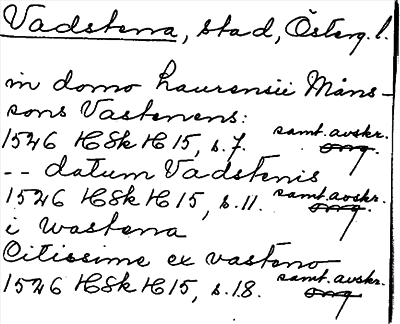 Vadstena, stad, Österg. l.
in domo Laurensii Måns-
sons Vastenens:
1526 HSk H 15, s. 7. samt. avskr. orig.
-- datum Vadstenis
1526 HSk H 15, s. 11. samt. avskr. orig.
i wastena
Citissime ex vasteno
1526 HSk H 15, s. 18. samt. avskr. orig